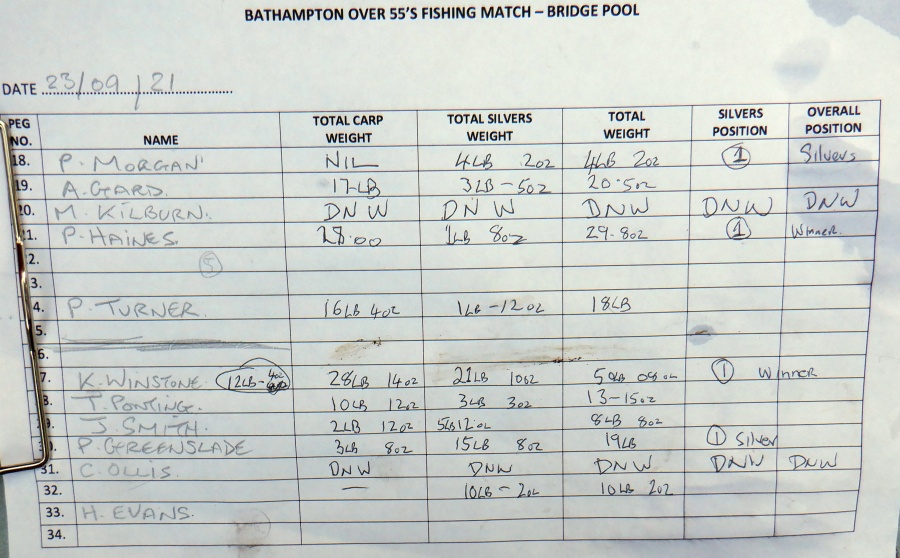 BATHAMPTON OVER 55'S FISHING MATCH – BRIDGE POOL
DATE 23/09/21
PEG NO. NAME TOTAL CARP WEIGHT TOTAL SILVERS WEIGHT TOTAL WEIGHT SILVERS POSITION OVERALL POSITION
18. P. MORGAN NIL 4LB 2oz 4LB 2oz 1 Silvers
19. A. GARD 17LB 3LB-5oz 20-5oz
20. M. KILBURN. DNW DNW DNW DNW DNW
1. P. HAINES 28.00 1LB 8oz 29-8oz 1 Winner.
2. 5
3.
4. P. TURNER. 16LB 4oz 1LB-12oz 18LB
5.
6.
7. K. WINSTONE 12LB- 28LB 14oz 21LB 10oz 50LB 08oz 1 Winner
8. T. PONTING. 10LB 12oz 3LB 3oz 13-15oz
9. J. SMITH. 2LB 12oz 5LB 12oz 8LB 8oz
P. GREENSLADE 3LB 8oz 15LB 8oz 19LB 1 Silver
31. C. OLLIS DNW DNW DNW DNW DNW
32. — 10LB-2oz 10LB 2oz
33. H. EVANS.
34.